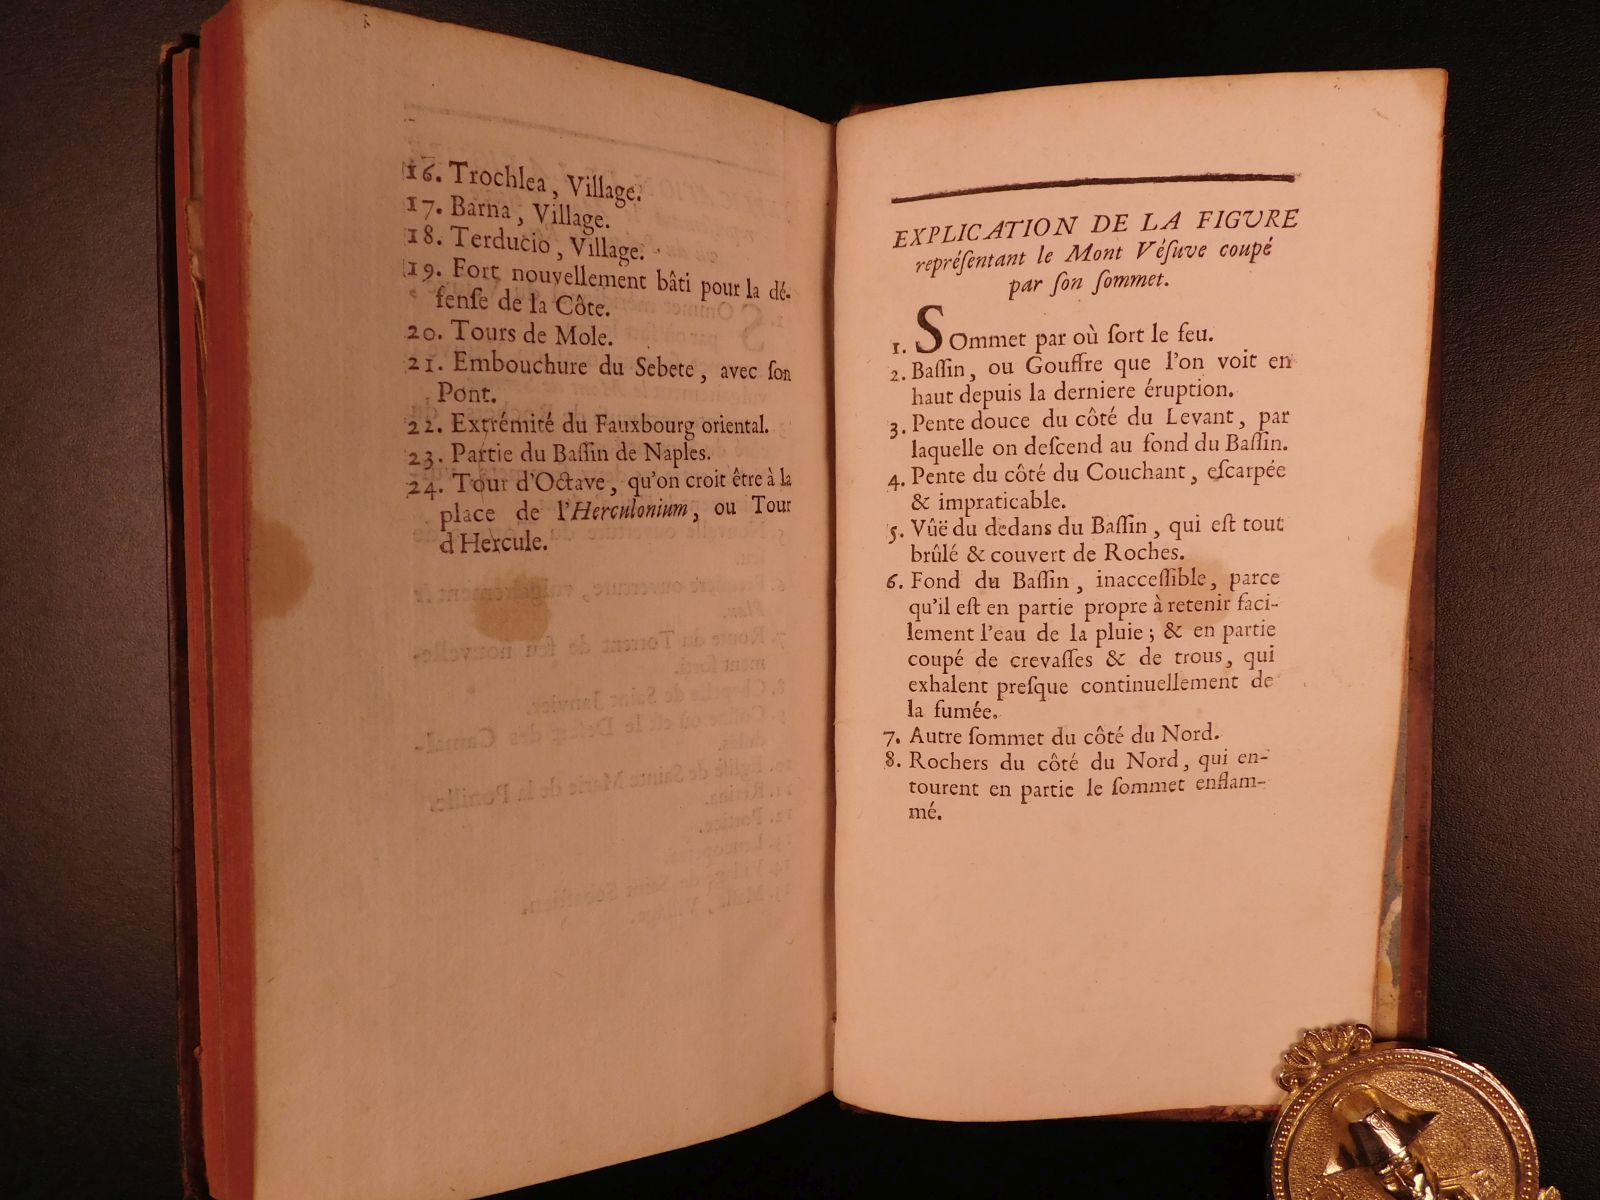 16. Trochlea, Village.
17. Barna, Village.
18. Terducio, Village.
19. Fort nouvellement bâti pour la dé-
fenſe de la Côte.
20. Tours de Mole.
21. Embouchure du Sebete, avec ſon
Pont.
22. Extrémité du Fauxbourg oriental.
23. Partie du Baſſin de Naples.
24. Tour d'Octave, qu'on croit être à la
place de l'Herculonium, ou Tour
d'Hercule.
EXPLICATION DE LA FIGVRE
repréſentant le Mont Véſuve coupé
par ſon ſommet.
1. SOmmet par où ſort le feu.
2. Baſſin, ou Gouffre que l'on voit en
haut depuis la derniere éruption.
3. Pente douce du côté du Levant, par
laquelle on deſcend au fond du Baſſin.
4. Pente du côté du Couchant, eſcarpée
& impraticable.
5. Vûë du dedans du Baſſin, qui eſt tout
brûlé & couvert de Roches.
6. Fond du Baſſin, inacceſſible, parce
qu'il eſt en partie propre à retenir faci-
lement l'eau de la pluie; & en partie
coupé de crevaſſes & de trous, qui
exhalent preſque continuellement de
la fumée.
7. Autre ſommet du côté du Nord.
8. Rochers du côté du Nord, qui en-
tourent en partie le ſommet enflam-
mé.